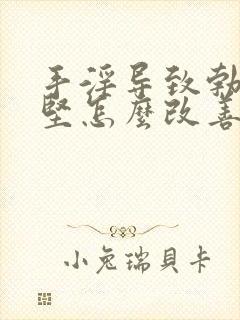 手淫导致勃
坚怎麽改善
小兔瑞貝卡